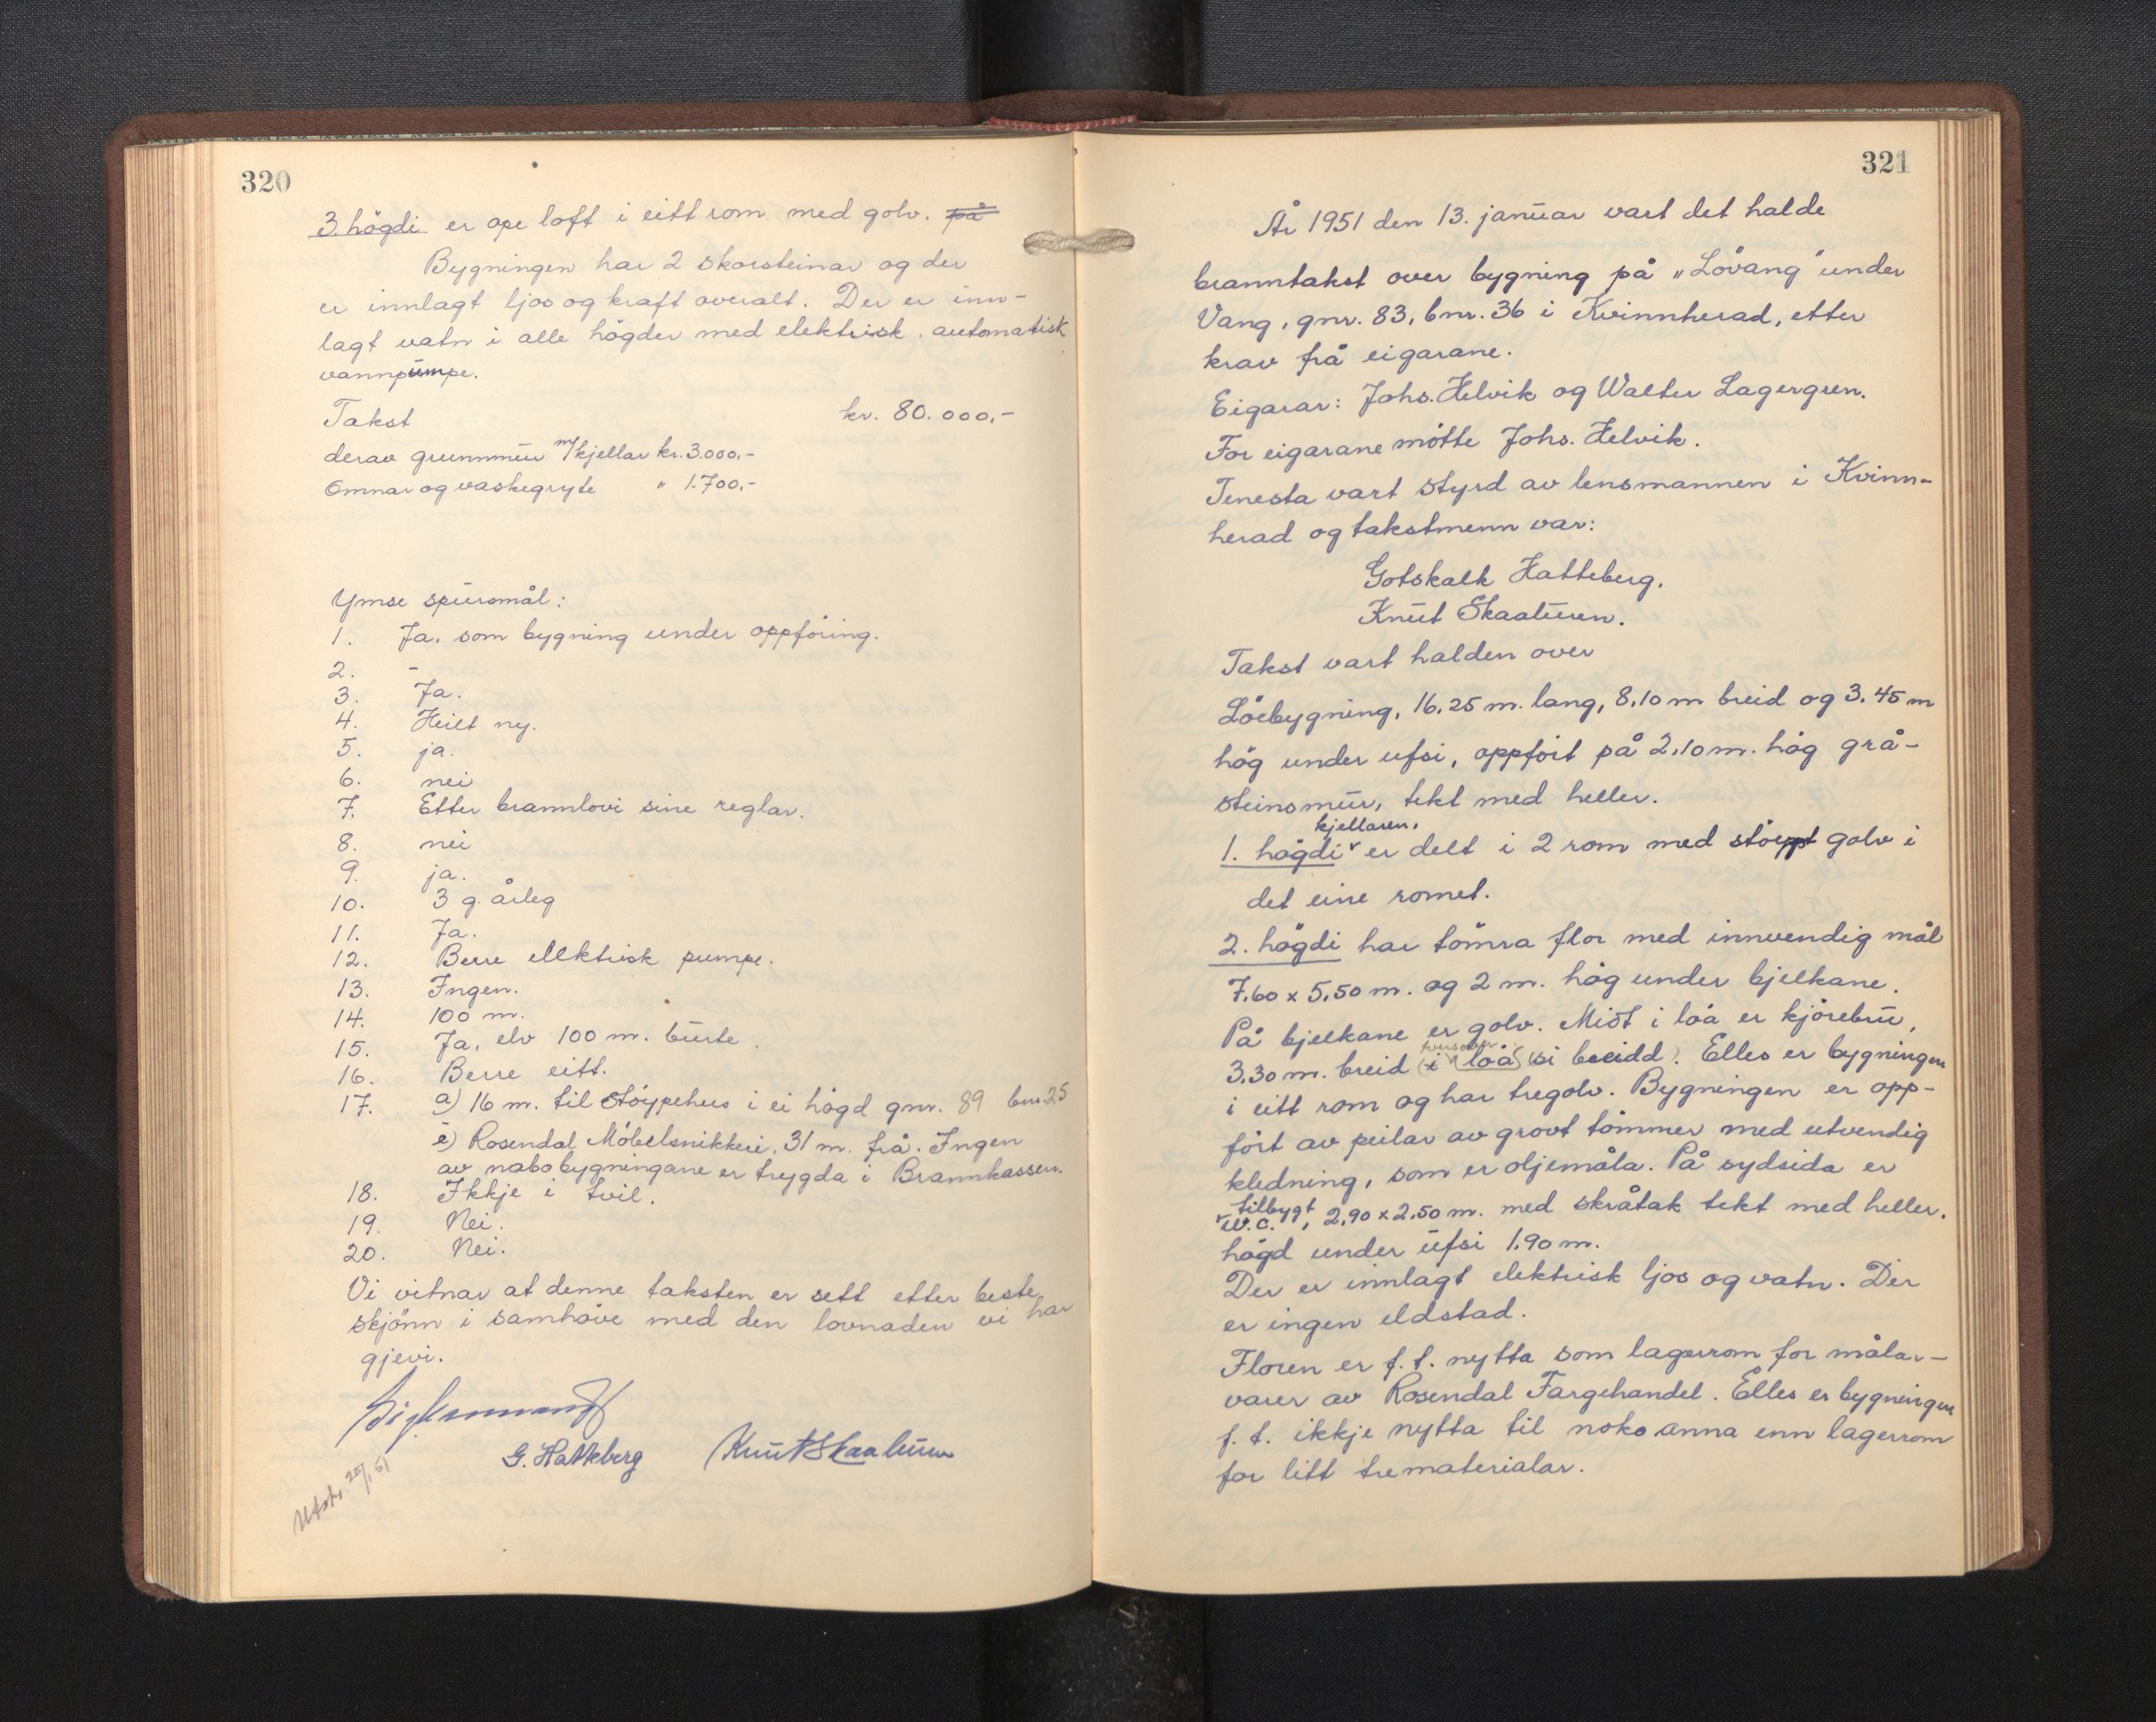 320
3. högdi er ope loft i eitt rom med golv. på
Bygningen har 2 skorsteinar og der
er innlagt ljos og kraft overalt. Der er inn-
lagt vatn i alle högder med elektrisk. automatisk
vannpumpe.
Takst kr. 80.000,-
derav grunnmur m/kjellar kr. 3.000,-
Omnar og vaskegryte " 1.700,-
Ymse spursmål:
1. Ja, som bygning under oppföring.
2. -
3. Ja.
4. Heilt ny.
5. ja.
6. nei
7. Etter brannlovi sine reglar.
8. nei
9. ja.
10. 3 g. årleg
11. Ja.
12. Berre elektrisk pumpe.
13. Ingen.
14. 100 m.
15. Ja, elv 100 m. burte.
16. Berre eitt.
17. a) 16 m. til Støypehus i ei högd gnr. 89 bnr. 25
e) Rosendal Möbelsnikkeri, 31 m. frå. Ingen
av nabobygningane er trygda i Brannkassen.
18. Ikkje i tvil.
19. Nei.
20. Nei.
Vi vitnar at denne taksten er sett etter beste
skjönn i samhöve med den lovnaden vi har
gjevi.
G. Hatteberg Knut Skaaluren
Utskr. 25/1 51
321
År 1951 den 13. januar vart det halde
branntakst over bygning på „Lövang" under
Vang, gnr. 83, bnr. 36 i Kvinnherad, etter
krav frå eigarane.
Eigarar: Johs. Helvik og Walter Lagergren.
For eigarane mötte Johs. Helvik.
Tenesta vart styrd av lensmannen i Kvinn-
herad og takstmenn var:
Gotskalk Hatteberg.
Knut Skaaluren.
Takst vart halden over
Löebygning, 16.25 m. lang, 8,10 m breid og 3.45 m
hög under ufsi, oppfört på 2,10 m. hög grå-
steinsmur, tekt med heller.
kjellaren,
1. högdi er delt i 2 rom med støypt golv i
det eine romet.
2. högdi har tömra flor med innvendig mål
7.60 x 5,50 m. og 2 m. hög under bjelkane.
På bjelkane er golv. Midt i löa er kjörebru,
tversover
3.30 m. breid (i löa si breidd). Elles er bygningen
i eitt rom og har tregolv. Bygningen er opp-
fört av peilar av grovt tömmer med utvendig
kledning, som er oljemåla. På sydsida er
tilbygt
W.C., 2,90 x 2.50 m. med skråtak tekt med heller.
högd under ufsi 1.90 m.
Der er innlagt elektrisk ljos og vatn. Der
er ingen eldstad.
Floren er f. t. nytta som lagerrom for målar-
varer av Rosendal Fargehandel. Elles er bygningen
f. t. ikkje nytta til noko anna enn lagerrom
for litt trematerialar.